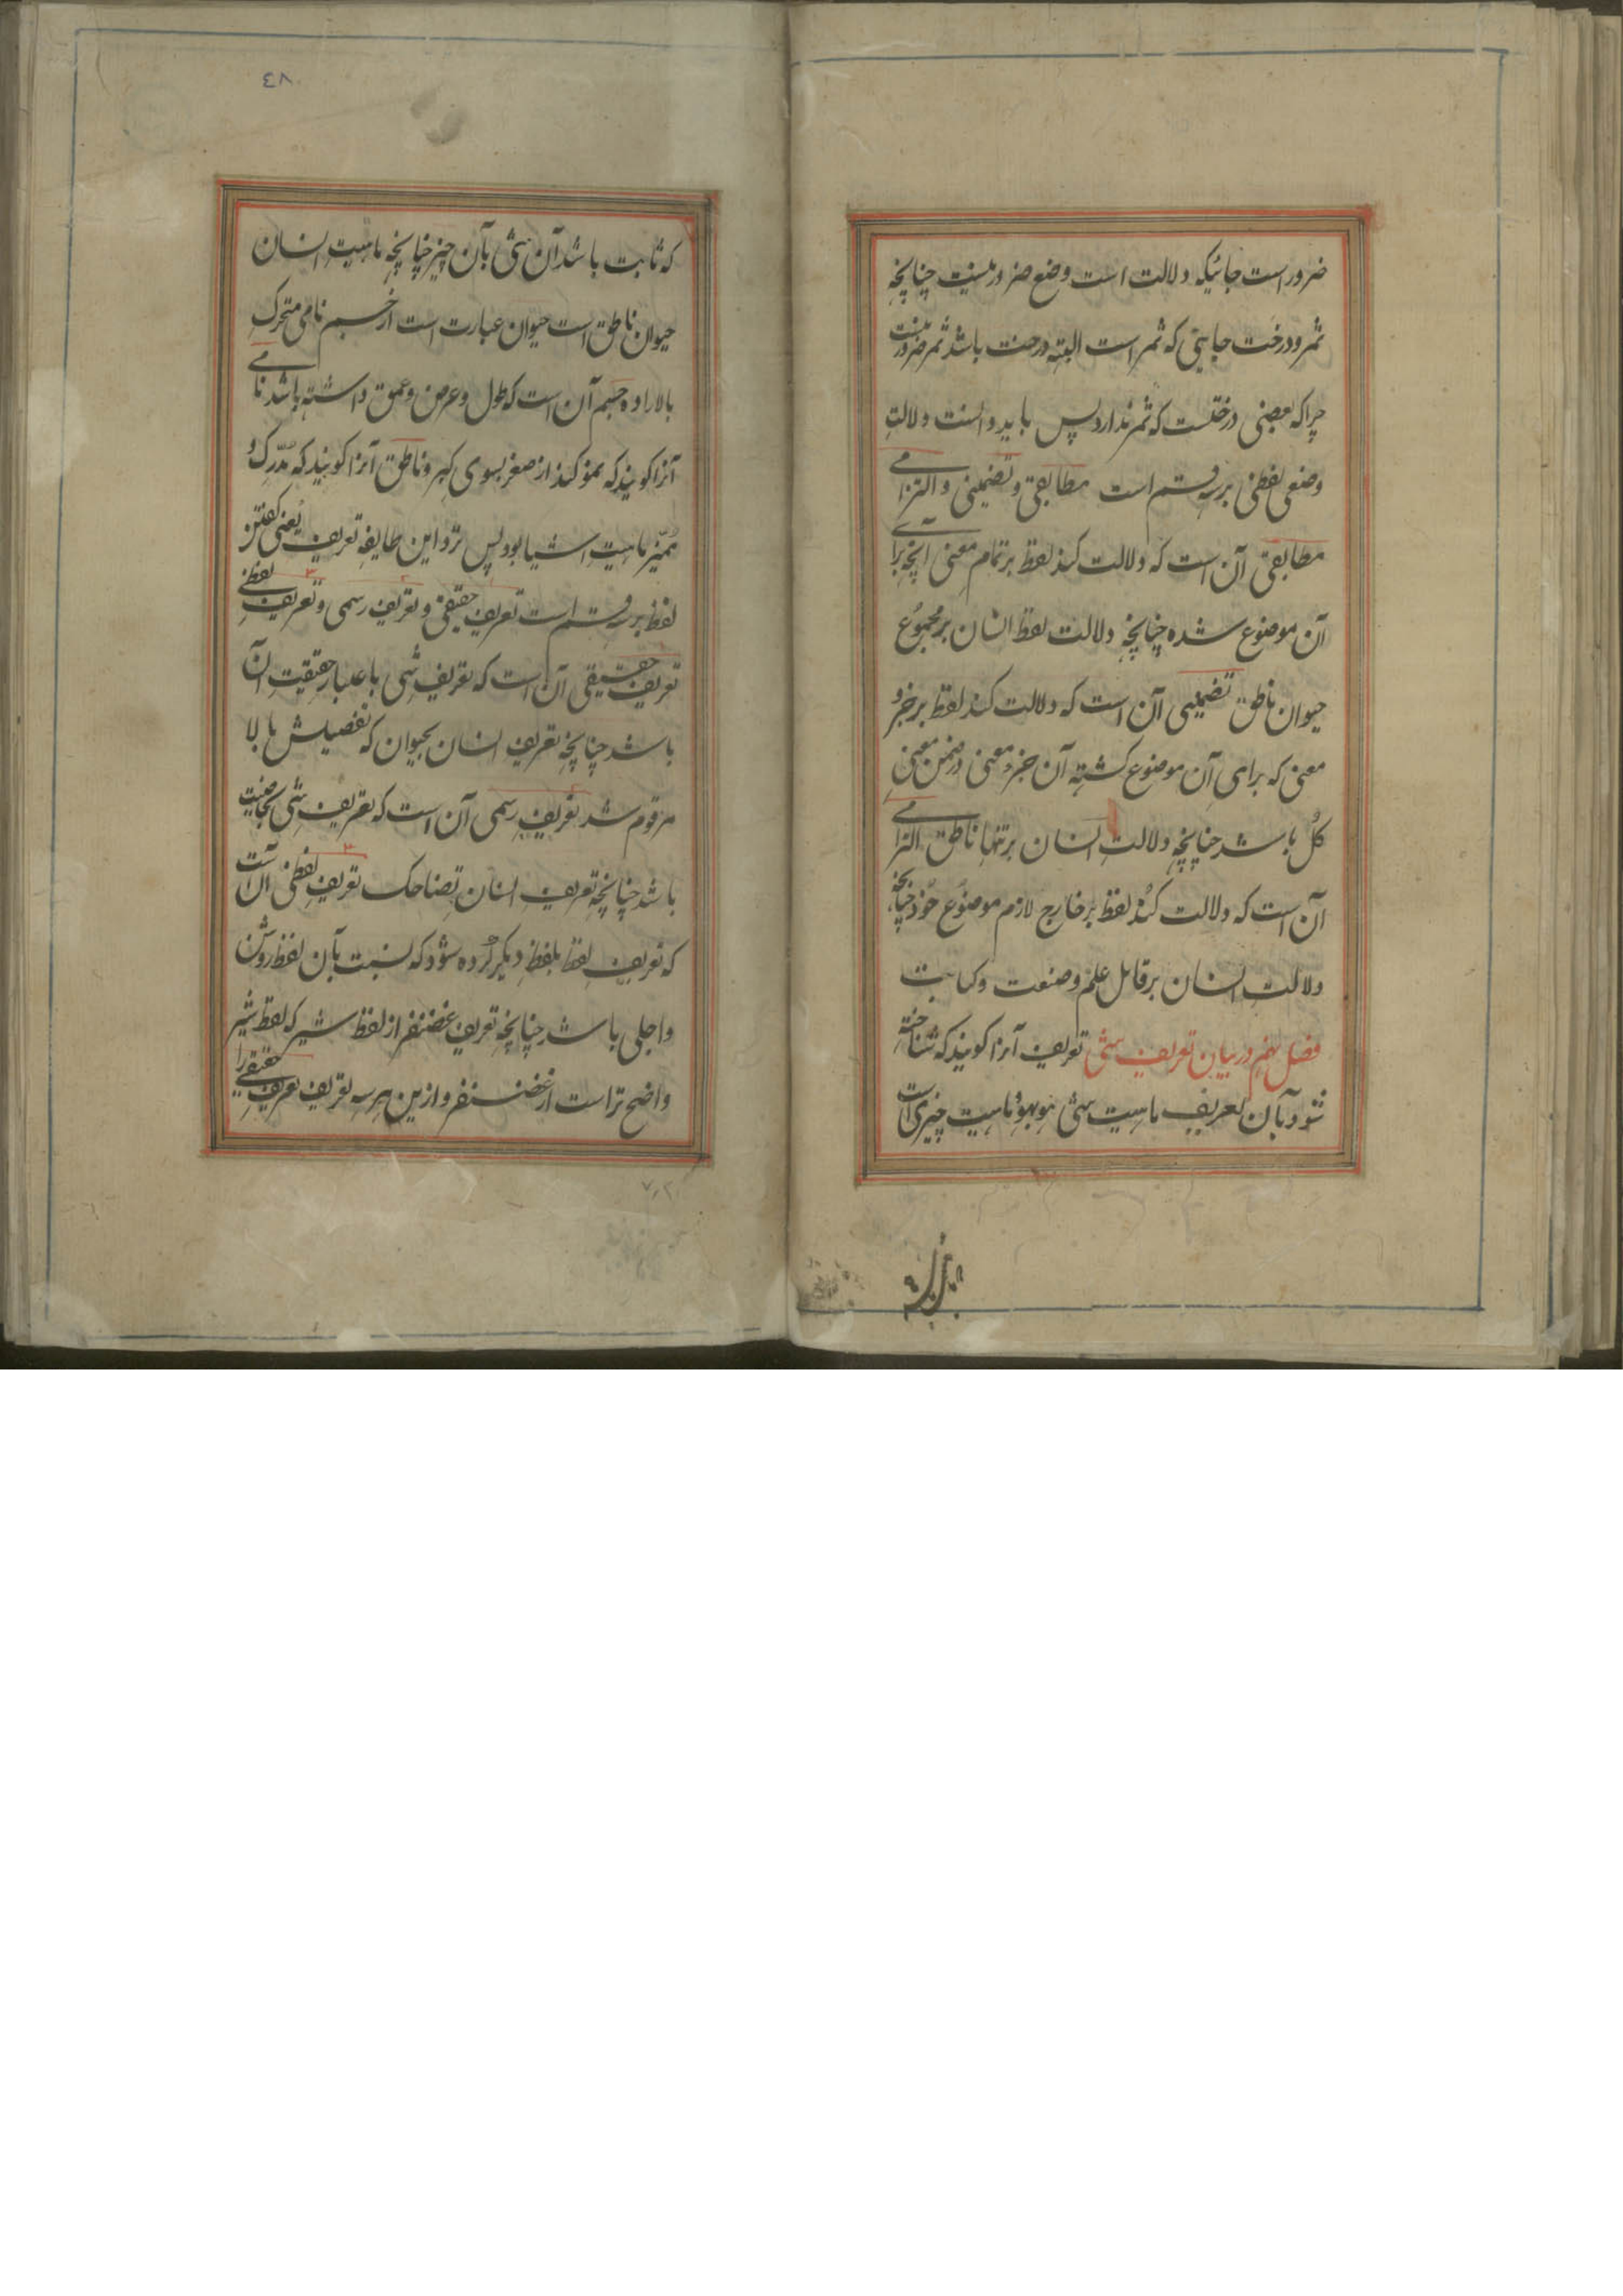 ضرور است جائیکه دلالت است وضع ضرور نیست چنانچه
ثمر و درخت جایی که ثمر است البته درخت باشد ثمر ضرور نیست
چرا که بعضی درختست که ثمر ندارد پس باید دانست دلالتِ
وضعی لفظی بر سه قسم است مطابقی و تضمینی و التزامی
مطابقی آن است که دلالت کند لفظ بر تمام معنی آنچه برای
آن موضوع شده چنانچه دلالت لفظ انسان بر مجموع
حیوان ناطق تضمینی آن است که دلالت کند لفظ بر جزو
معنی که برای آن موضوع گشته آن جزو معنی در ضمن معنی
کُل باشد چنانچه دلالتِ انسان بر تنها ناطق التزامی
آن است که دلالت کند لفظ بر خارج لازم موضوع خود چنانچه
دلالت انسان بر قابل علم و صنعت و کتابت
فصل نهم در بیان تعریف شئی تعریف آنرا کویند که شناخته
شود بآن تعریف ماهیت شئی هو بهو و ماهیت چیزی است
٤٨
که ثابت باشد آن شئی بآن چیز چنانچه ماهیتِ انسان
حیوان ناطق است حیوان عبارت است از جسم نامی متحرکِ
بالاراده جسم آن است که طول و عرض و عمق داشته باشد نامی
آنرا کویند که نمو کند از صغر بسوی کبر و ناطق آنرا کویند که مُدرِک و
مُمیّز ماهیتِ اشیا بود پس نزد این طایفه تعریف یعنی گفتن
لفظ بر سه قسم است تعریف حقیقی و تعریف رسمی و تعریف لفظی
تعریف حقیقی آن است که تعریف شی باعتبار حقیقتِ آن
باشد چنانچه تعریف انسان بحیوان که تفصیلش بالا
مرقوم شد تعریف رسمی آن است که تعریف شی بخاصیت
باشد چنانچه تعریف انسان بضاحک تعریف لفظی آن است
که تعریف لفظ بلفظِ دیکر کرده شود که نسبت بآن لفظ روشن
واجلی باشد چنانچه تعریف غضنفر از لفظ شیر که لفظ شیر
واضح تر است از غضنفر و ازین هر سه تعریف تعریف حقیقی را